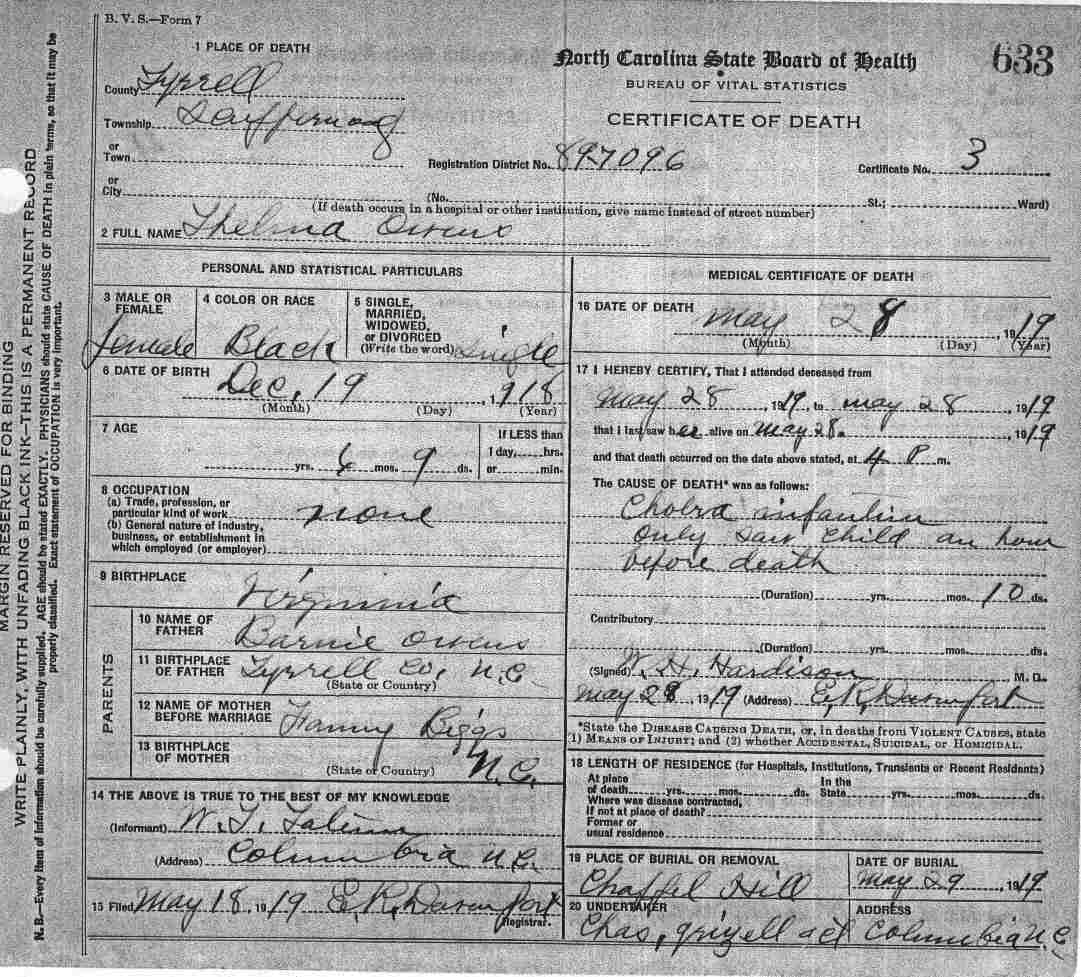 B. V. S.—Form 7
1 PLACE OF DEATH
County Tyrrell
Township Scuppernong
or
Town
or
City
North Carolina State Board of Health
633
BUREAU OF VITAL STATISTICS
CERTIFICATE OF DEATH
Registration District No. 89-7096
Certificate No. 3
(No. St.; Ward)
(If death occurs in a hospital or other institution, give name instead of street number)
2 FULL NAME Thelma Owens
PERSONAL AND STATISTICAL PARTICULARS
3 MALE OR FEMALE
female
4 COLOR OR RACE
Black
5 SINGLE, MARRIED, WIDOWED, or DIVORCED
(Write the word) Single
6 DATE OF BIRTH Dec, 19 , 918
(Month) (Day) (Year)
7 AGE
yrs. 6 mos. 9 ds.
If LESS than
1 day, hrs.
or min.
8 OCCUPATION
(a) Trade, profession, or
particular kind of work none
(b) General nature of industry,
business, or establishment in
which employed (or employer)
9 BIRTHPLACE
Virginnia
PARENTS
10 NAME OF FATHER Barnie Owens
11 BIRTHPLACE OF FATHER Tyrrell Co, N.C
(State or Country)
12 NAME OF MOTHER BEFORE MARRIAGE Fanny Biggs
13 BIRTHPLACE OF MOTHER
(State or Country) N.C.
14 THE ABOVE IS TRUE TO THE BEST OF MY KNOWLEDGE
(Informant) W.T.
(Address) Columbia N.C.
15 Filed May 18, 1919 E.R. Davenport
Registrar.
MEDICAL CERTIFICATE OF DEATH
16 DATE OF DEATH May 28, 1919
(Month) (Day) (Year)
17 I HEREBY CERTIFY, That I attended deceased from
May 28, 1919, to May 28, 1919
that I last saw her alive on May 28. , 1919
and that death occurred on the date above stated, at 4 P m.
The CAUSE OF DEATH* was as follows:
Cholra infantum
Only saw child an hour
before death
(Duration) yrs. mos. 10 ds.
Contributory
(Duration) yrs. mos. ds.
(Signed) W. H. Hardison M. D.
May 28 1919 (Address) E.R. Davenport
*State the DISEASE CAUSING DEATH, or, in deaths from VIOLENT CAUSES, state
1) MEANS OF INJURY; and (2) whether ACCIDENTAL, SUICIDAL, or HOMICIDAL.
18 LENGTH OF RESIDENCE (for Hospitals, Institutions, Transients or Recent Residents)
At place of death yrs. mos. ds. In the State yrs. mos. ds.
Where was disease contracted,
If not at place of death?
Former or
usual residence
19 PLACE OF BURIAL OR REMOVAL
Chappel Hill
DATE OF BURIAL
May 29, 1919
20 UNDERTAKER
Chas,
ADDRESS
Columbia N.C
MARGIN RESERVED FOR BINDING
WRITE PLAINLY, WITH UNFADING BLACK INK—THIS IS A PERMANENT RECORD
N. B.—Every item of information should be carefully supplied. AGE should be stated EXACTLY. PHYSICIANS should state CAUSE OF DEATH in plain terms, so that it may be
properly classified. Exact statement of OCCUPATION is very important.